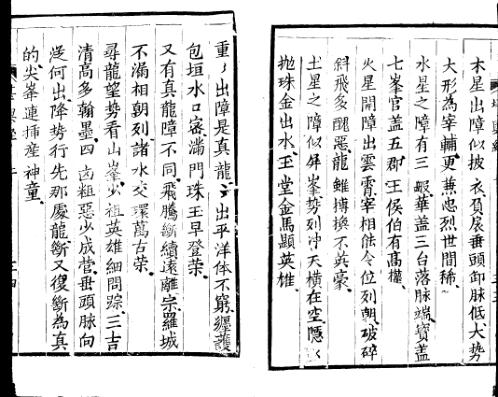 木星出障似披衣貝展垂頭卸脉低大势
大形為宰輔更兼忠烈世間稀
水星之障有三般華盖三台落脉端寳盖
七峯官盖五郡王侯伯有高權
火星開障出雲霄宰相能令位列朝破碎
斜飛多醜惡龍雖摶換不英豪
土星之障似屏峯势列冲天橫在空隱〻
抛珠金出水玉堂金馬顯英雄
重〻出障是真龍〻出平洋体不窮纏護
包垣水口客満門珠玉早登荣
又有真龍障不同飛騰斷續遠離宗羅城
不漏相朝列諸水交環萬古荣
尋龍望势看山峯火祖英雄細問踪三吉
清高多翰墨四凶粗惡少成营垂頭脉向
從何出降势行先那處龍斷又復斷為真
的尖峯連挿産神童